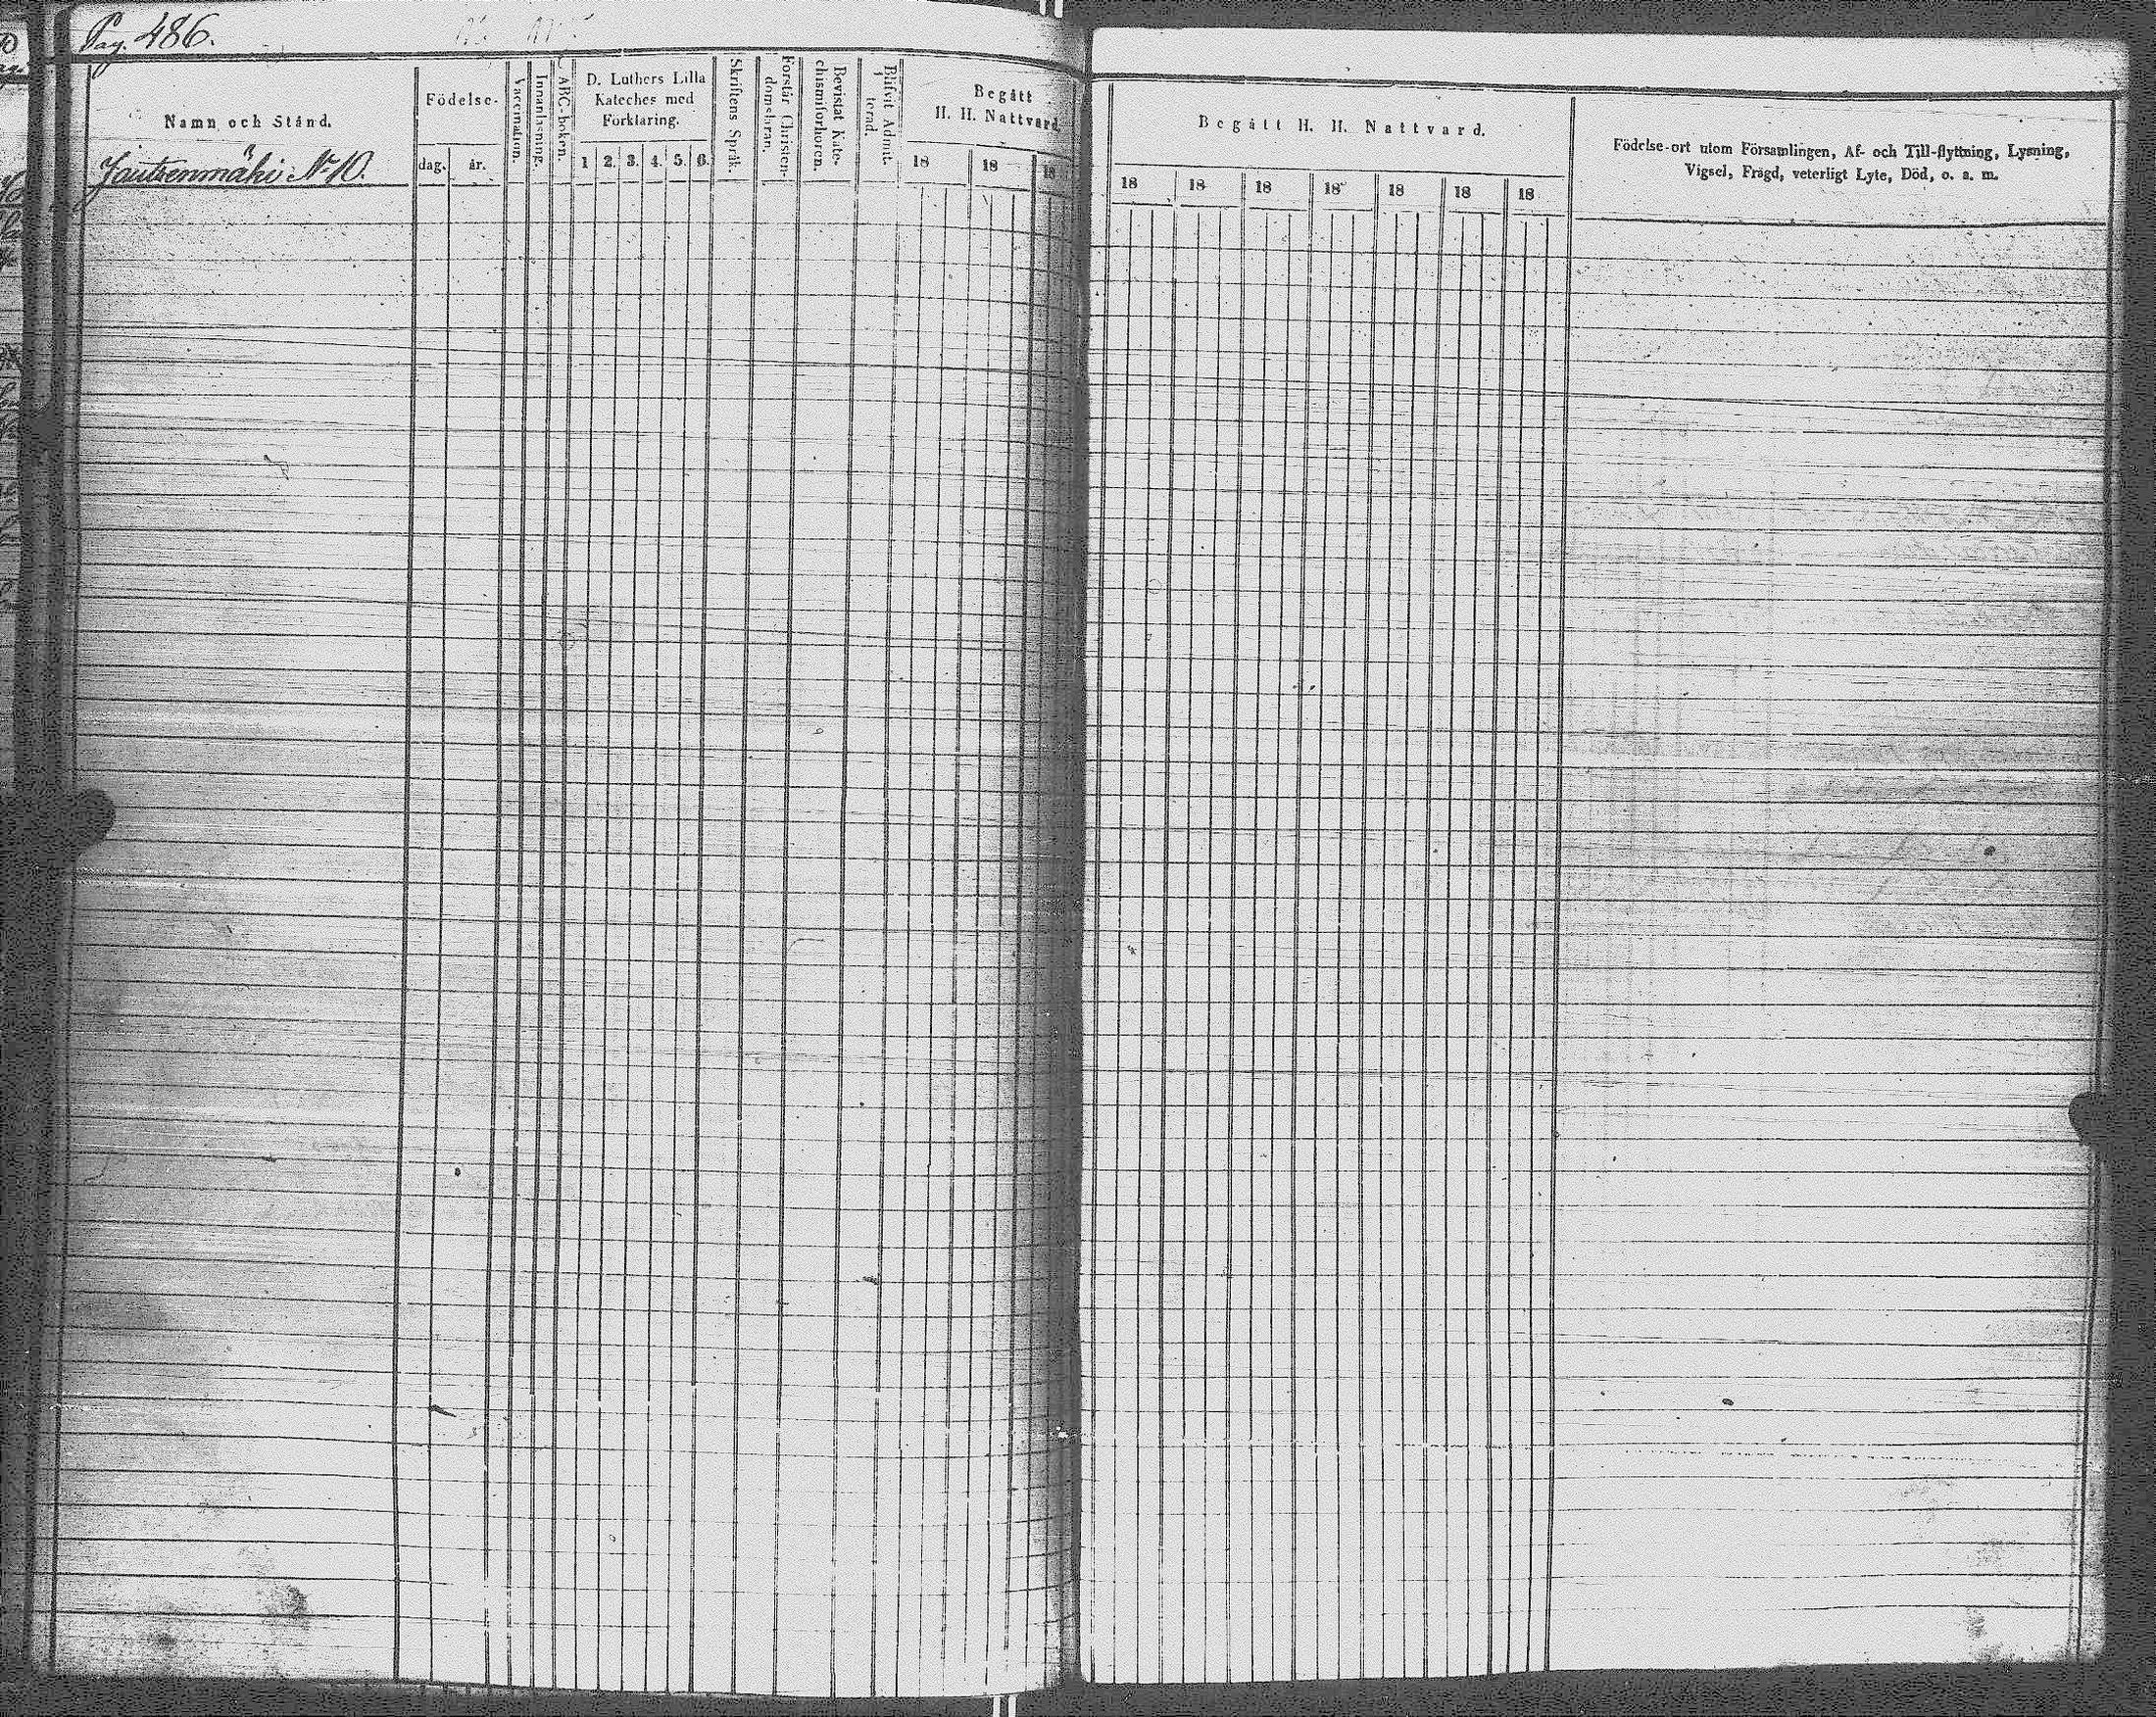 Pag. 486.
Namn och Stånd.
Joutsenmäki № 10.
Födelse-
dag. år.
Vaccination.
Innanläsning.
ABC-boken.
D. Luthers Lilla
Kateches med
Förklaring.
1 2. 3. 4. 5. 6.
Skriftens Språk.
Förstår Christen-
domsläran.
Bevistat Kate-
chismiförhören.
Blifvit Admit-
terad.
Begått
H. H. Nattvard.
18 18 18
Begått H. H. Nattvard.
18 18 18 18 18 18 18
Födelse-ort utom Församlingen, Af- och Till-flyttning, Lysning,
Vigsel, Frägd, veterligt Lyte, Död, o. s. m.